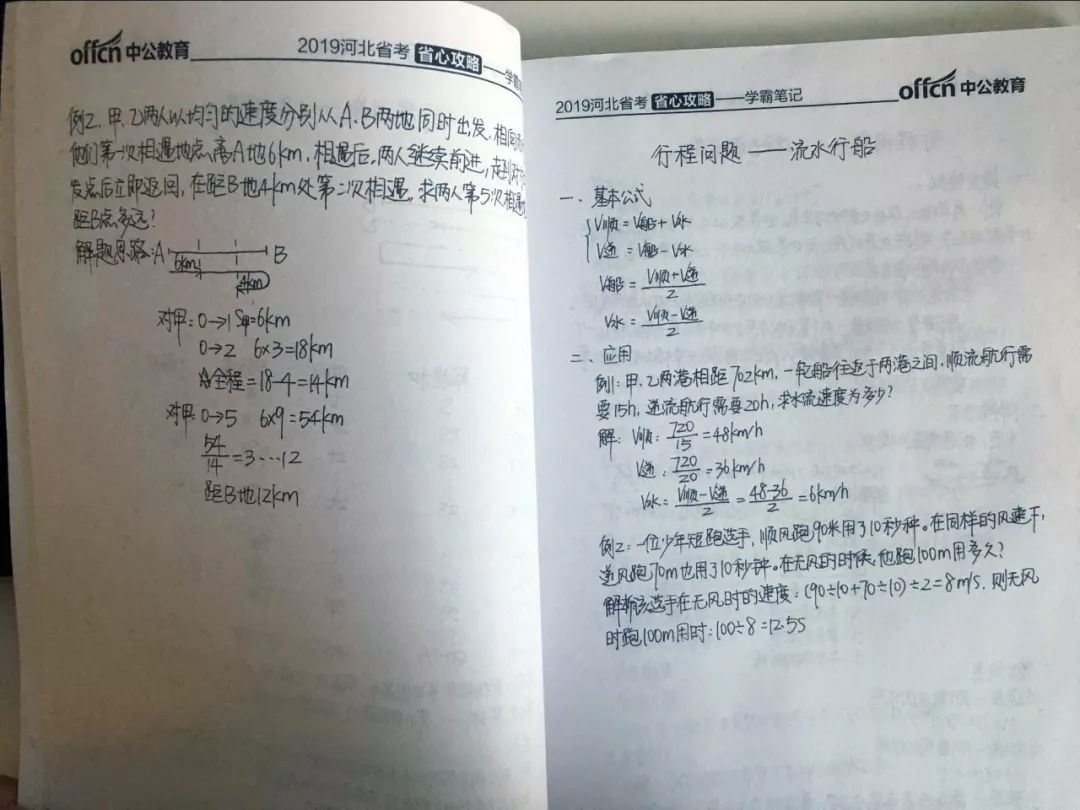 offcn 中公教育
2019河北省考 省心攻略 ——学霸
例2. 甲、乙两人以均匀的速度分别从A、B两地同时出发, 相向
他们第一次相遇地点离A地6km, 相遇后, 两人继续前进, 走到对方
发点后立即返回, 在距B地4km处第二次相遇, 求两人第5次相遇
距B点多远?
解题思路: A B
6km
4km
对甲: 0→1 S甲=6km
0→2 6×3=18km
全程=18-4=14km
对甲: 0→5 6×9=54km
54/14=3…12
距B地12km
2019河北省考 省心攻略 ——学霸笔记 offcn 中公教育
行程问题 —— 流水行船
一、基本公式
V顺=V船+V水
V逆=V船-V水
V船=(V顺+V逆)/2
V水=(V顺-V逆)/2
二、应用
例1: 甲、乙两港相距702km, 一轮船往返于两港之间, 顺流航行需
要15h, 逆流航行需要20h, 求水流速度为多少?
解: V顺: 720/15=48km/h
V逆: 720/20=36km/h
V水=(V顺-V逆)/2=(48-36)/2=6km/h
例2: 一位少年短跑选手, 顺风跑90米用了10秒种。在同样的风速下,
逆风跑70m也用了10秒钟。在无风的时候, 他跑100m用多久?
解析: 该选手在无风时的速度: (90÷10+70÷10)÷2=8m/s, 则无风
时跑100m用时: 100÷8=12.5s